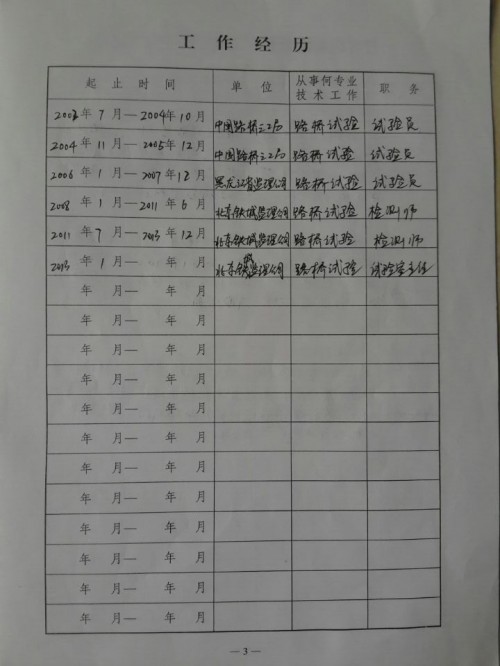 工作经历
起止时间 单位 从事何专业技术工作 职务
2003年7月—2004年10月 中国路桥三工局 路桥试验 试验员
2004年11月—2005年12月 中国路桥三工局 路桥试验 试验员
2006年1月—2007年12月 黑龙江省监理公司 路桥试验 试验员
2008年1月—2011年6月 北京铁城监理公司 路桥试验 检测师
2011年7月—2013年12月 北京铁城监理公司 路桥试验 检测师
2013年1月—年月 北京铁城监理公司 路桥试验 试验室主任
年月—年月
年月—年月
年月—年月
年月—年月
年月—年月
年月—年月
年月—年月
年月—年月
年月—年月
年月—年月
年月—年月
年月—年月
—3—